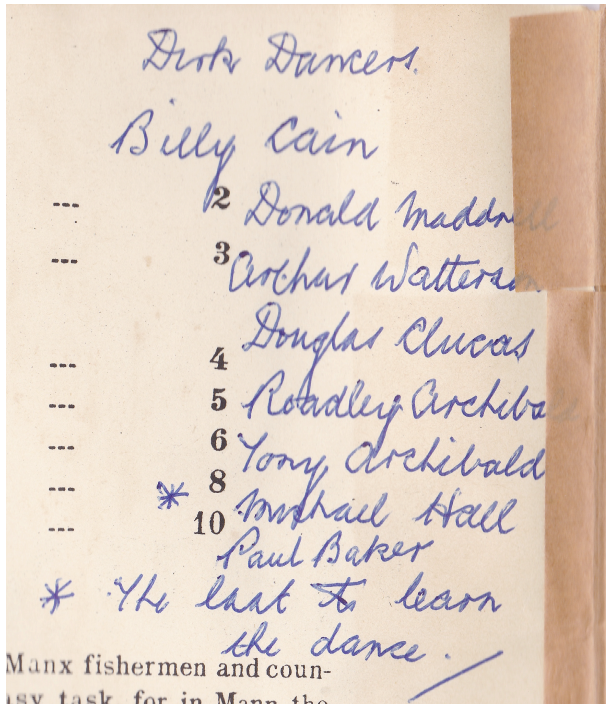 Dirk Dancers.
Billy Cain
--- 2 Donald Maddrell
--- 3 Arthur Watterson
Douglas Clucas
--- 4
--- 5 Roadley Archiba
--- 6 Tony Archibald
--- 8 * Michael Hall
--- 10
Paul Baker
* The last to learn
the dance.
Manx fishermen and coun-
asy task, for in Mann the